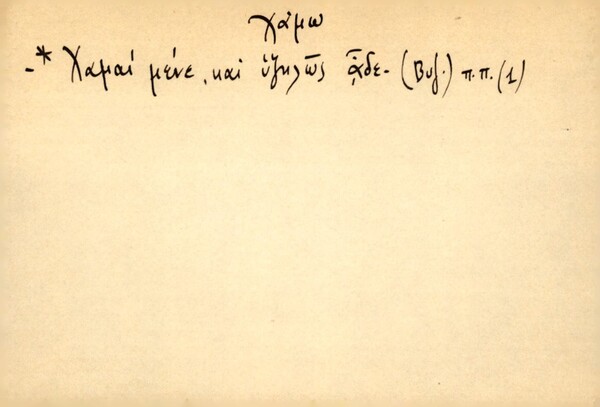 χάμω
-* Χαμαί μένε, καί ὑψηλῶς ᾆδε- (Βυζ.) π.π. (1)